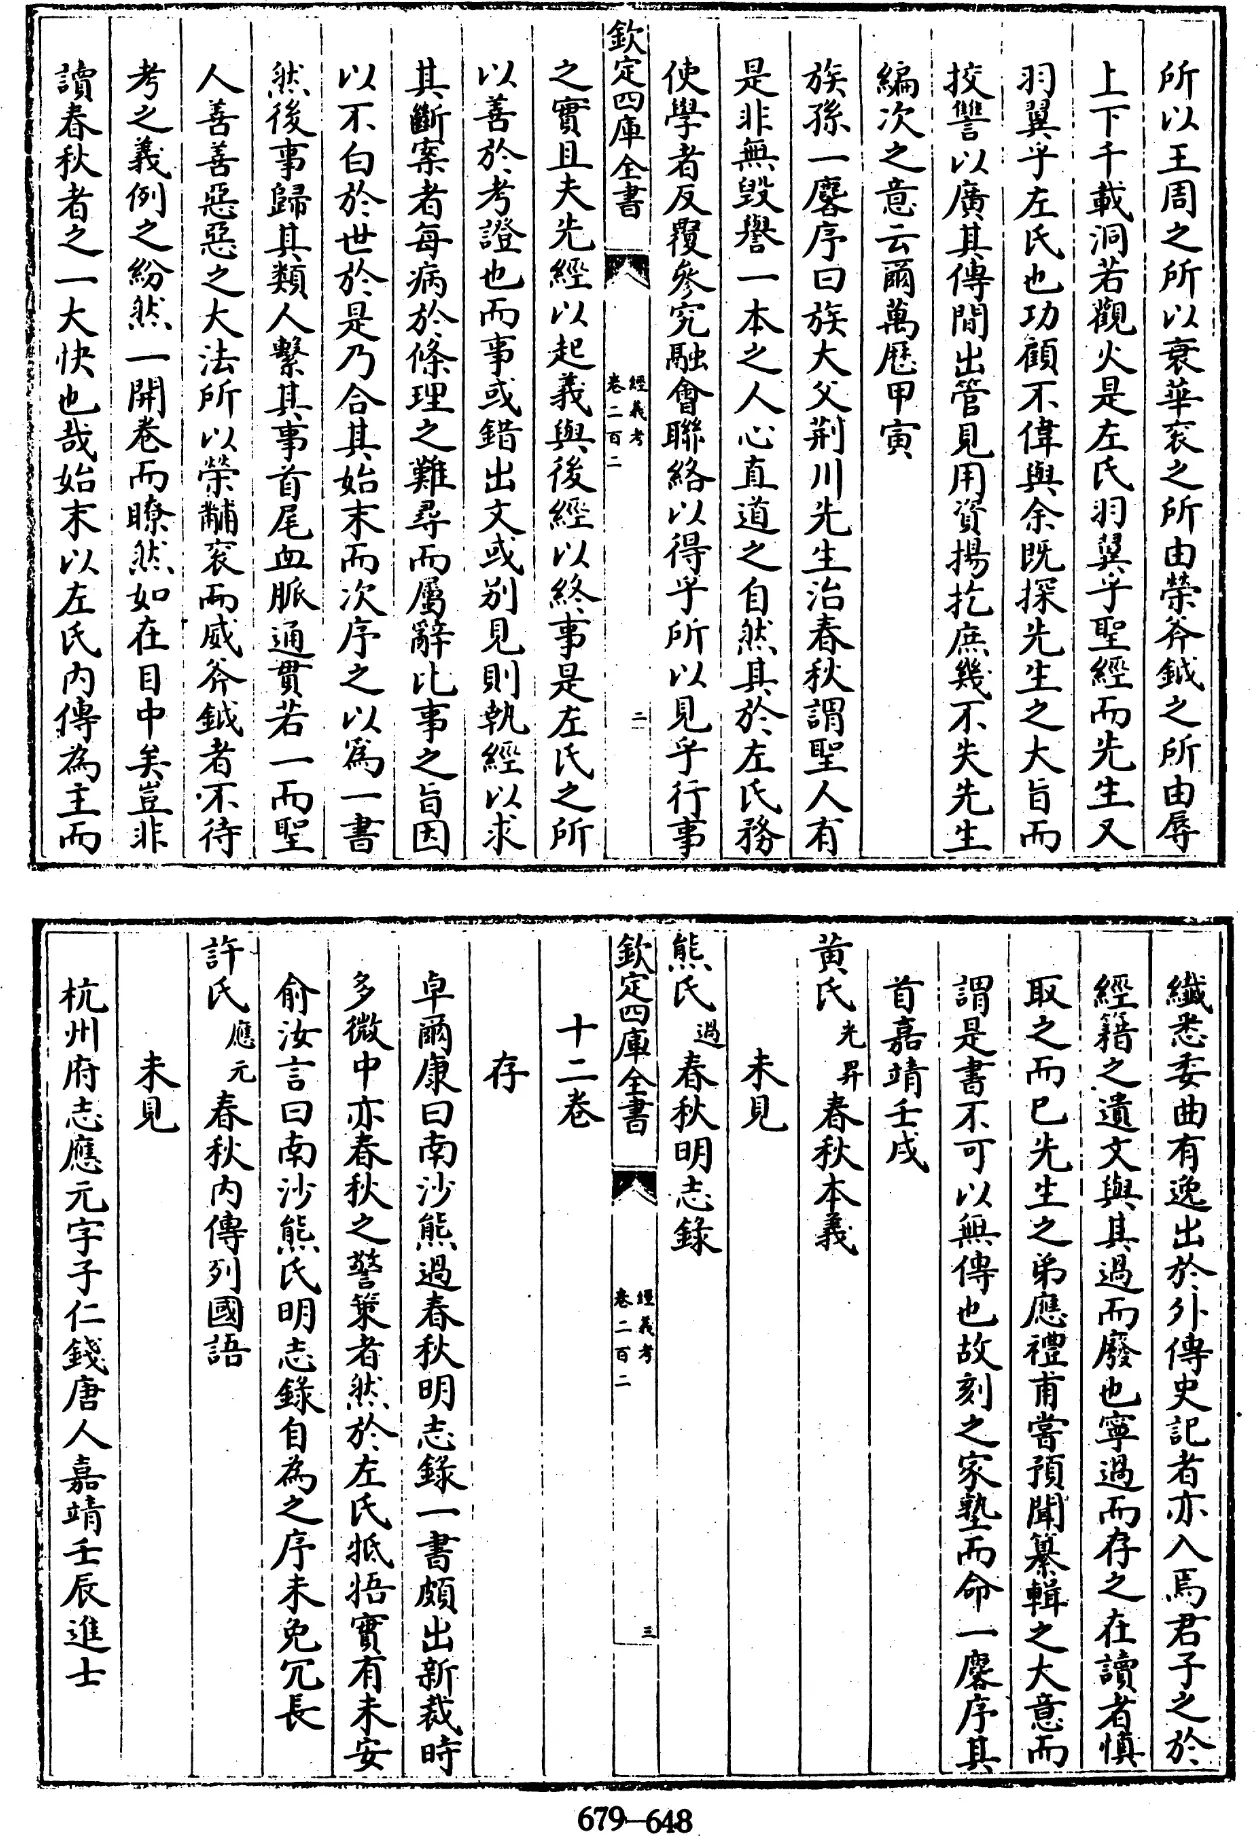 所以王周之所以衰華衮之所由榮斧鉞之所由辱
上下千載洞若觀火是左氏羽翼乎聖經而先生又
羽翼乎左氏也功顧不偉與余既探先生之大旨而
挍讐以廣其傳間出管見用資揚扢庶幾不失先生
編次之意云爾萬歷甲寅
族孫一麐序曰族大父荆川先生治春秋謂聖人有
是非無毀譽一本之人心直道之自然其於左氏務
使學者反覆參究融會聯絡以得乎所以見乎行事
欽定四庫全書
經義考
卷二百二
二
之實且夫先經以起義與後經以終事是左氏之所
以善於考證也而事或錯出文或别見則執經以求
其斷案者每病於條理之難尋而屬辭比事之旨因
以不白於世於是乃合其始末而次序之以爲一書
然後事歸其類人繫其事首尾血脈通貫若一而聖
人善善惡惡之大法所以榮黼衮而威斧鉞者不待
考之義例之紛然一開卷而瞭然如在目中矣豈非
讀春秋者之一大快也哉始末以左氏内傳為主而
纎悉委曲有逸出於外傳史記者亦入焉君子之於
經籍之遺文與其過而廢也寧過而存之在讀者慎
取之而已先生之弟應禮甫嘗預聞纂輯之大意而
謂是書不可以無傳也故刻之家塾而命一麐序其
首嘉靖壬戌
黄氏光昇春秋本義
未見
熊氏過春秋明志錄
欽定四庫全書
經義考
卷二百二
三
十二卷
存
卓爾康曰南沙熊過春秋明志錄一書頗出新裁時
多微中亦春秋之警䇿者然於左氏牴牾實有未安
俞汝言曰南沙熊氏明志錄自為之序未免冗長
許氏應元春秋内傳列國語
未見
杭州府志應元字子仁錢唐人嘉靖壬辰進士
679-648